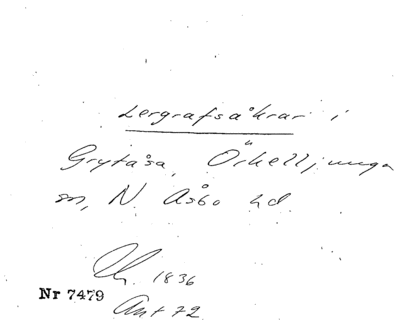 Lergrafsåkrar i
Grytåsa, Örkelljunga
sn, N. Åsbo hd.
1836
Nr 7479
Ant 72